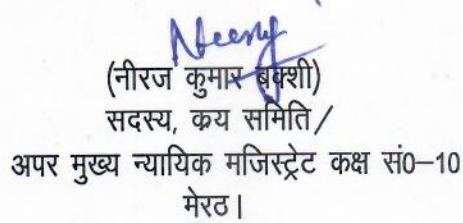 Neeraj
(नीरज कुमार बक्शी)
सदस्य, क्रय समिति/
अपर मुख्य न्यायिक मजिस्ट्रेट कक्ष सं0–10
मेरठ।